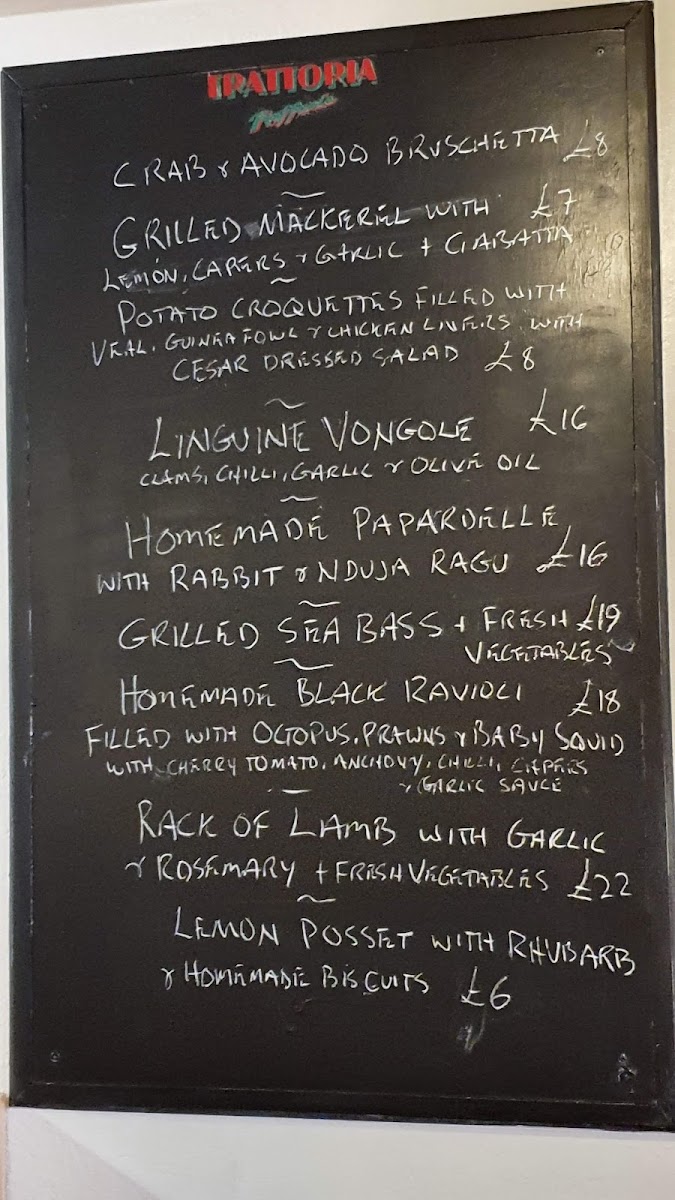 TRATTORIA
Raffaele
CRAB & AVOCADO BRUSCHETTA £8
~
GRILLED MACKEREL WITH £7
LEMON, CAPERS & GARLIC + CIABATTA
~
POTATO CROQUETTES FILLED WITH
VEAL, GUINEA FOWL & CHICKEN LIVERS WITH
CESAR DRESSED SALAD £8
~
LINGUINE VONGOLE £16
CLAMS, CHILLI, GARLIC & OLIVE OIL
~
HOMEMADE PAPARDELLE
WITH RABBIT & NDUJA RAGU £16
~
GRILLED SEA BASS + FRESH £19
VEGETABLES
~
HOMEMADE BLACK RAVIOLI £18
FILLED WITH OCTOPUS, PRAWNS & BABY SQUID
WITH CHERRY TOMATO, ANCHOVY, CHILLI, CAPERS
& GARLIC SAUCE
~
RACK OF LAMB WITH GARLIC
& ROSEMARY + FRESH VEGETABLES £22
~
LEMON POSSET WITH RHUBARB
& HOMEMADE BISCUITS £6